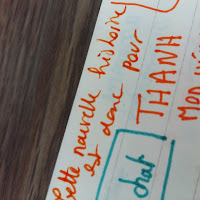 cette nouvelle histoire
est donc pour
THANH
MON
chat